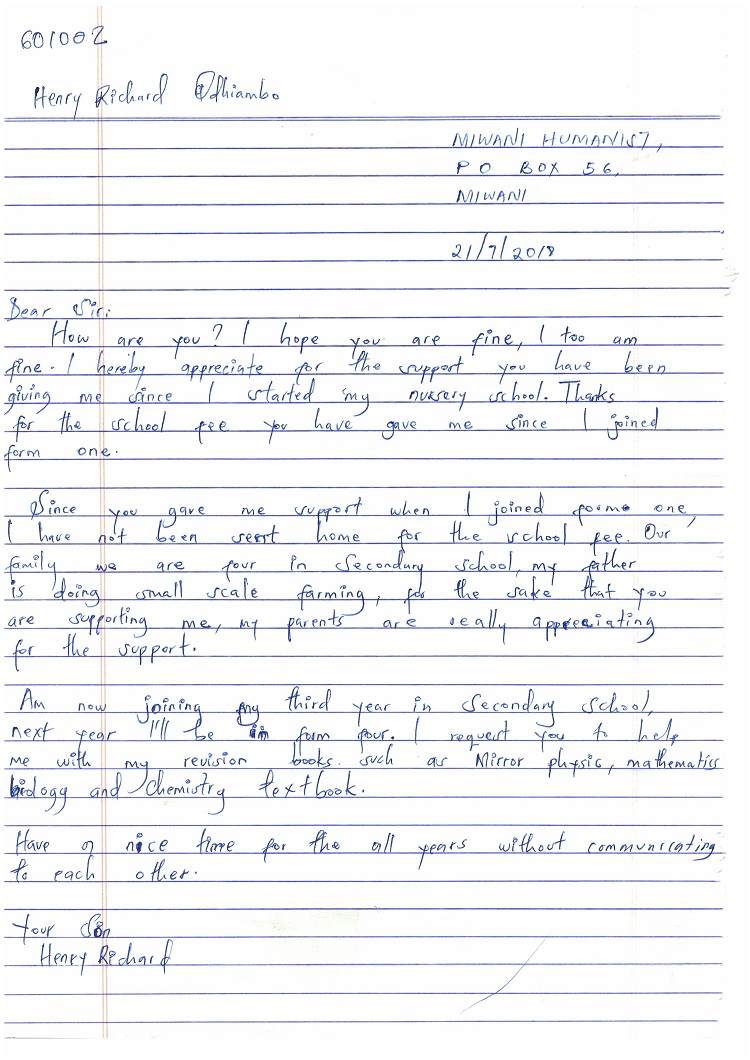 601002
Henry Richard Odhiambo
MIWANI HUMANIST,
P O BOX 56,
MIWANI
21/7/2018
Dear Sir:
How are you? I hope you are fine, I too am
fine. I hereby appreciate for the support you have been
giving me since I started my nursery school. Thanks
for the school fee you have gave me since I joined
form one.
Since you gave me support when I joined forme one,
I have not been sent home for the school fee. Our
family we are four in Secondary school, my father
is doing small scale farming, for the sake that you
are supporting me, my parents are really appreciating
for the support.
Am now joining my third year in Secondary school,
next year I'll be in form four. I request you to help
me with my revision books. such as Mirror physic, mathematics
biology and Chemistry textbook.
Have a nice time for the all years without communicating
to each other.
Your Son
Henry Richard